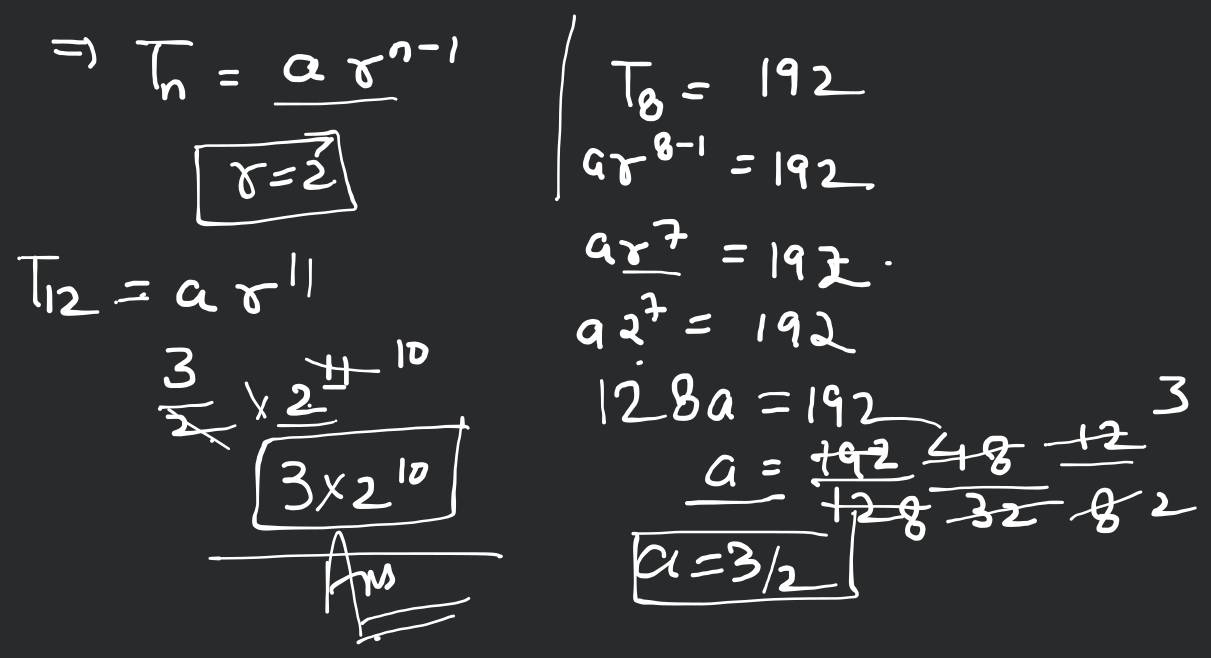 ⇒ Tn = a r^(n-1)
r=2
T12 = a r^11
3/2 × 2^11 10
3×2^10
Ans
T8 = 192
ar^(8-1) = 192
ar^7 = 192.
a2^7 = 192
128a = 192
a = 192/128 48/32 12/8 3/2
a=3/2